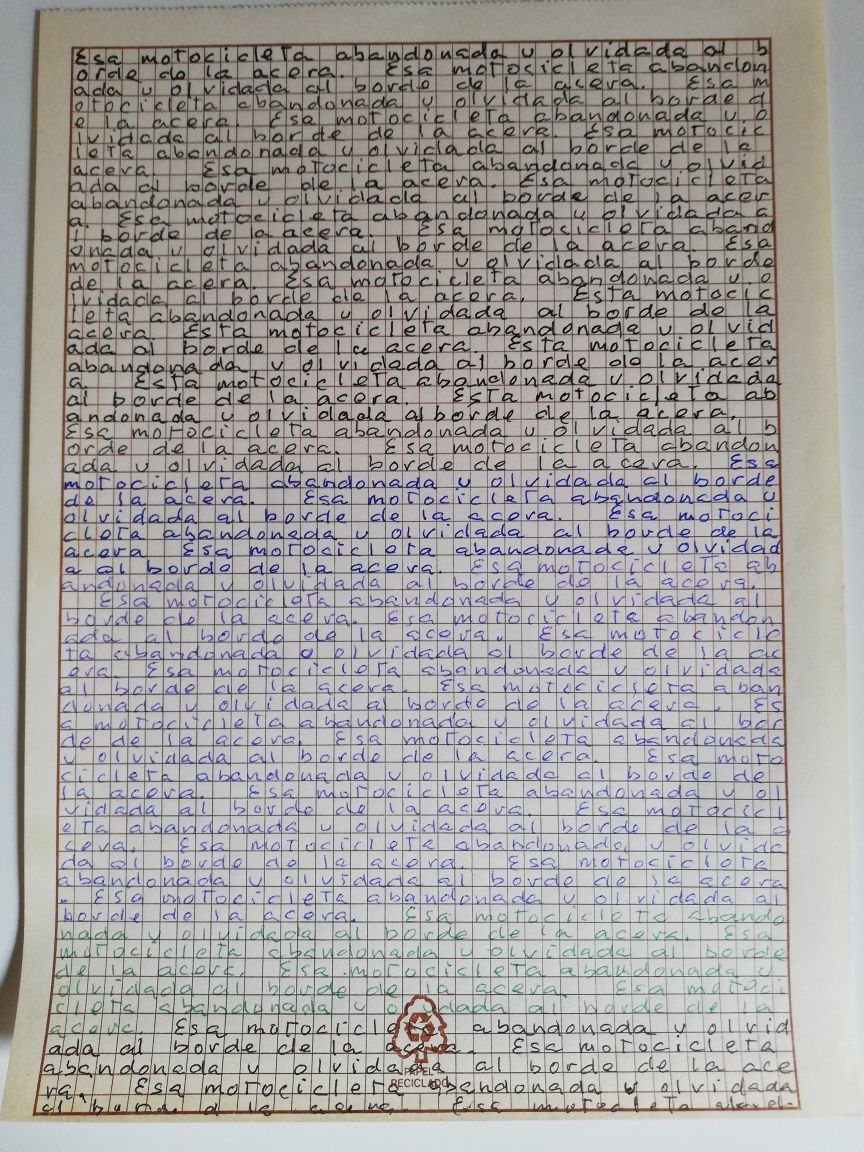 Esa motocicleta abandonada y olvidada al b
orde de la acera. Esa motocicleta abandon
ada y olvidada al borde de la acera. Esa m
otocicleta abandonada y olvidada al borde d
e la acera. Esa motocicleta abandonada y o
lvidada al borde de la acera. Esa motocic
leta abandonada y olvidada al borde de la
acera. Esa motocicleta abandonada y olvid
ada al borde de la acera. Esa motocicleta
abandonada y olvidada al borde de la acer
a. Esa motocicleta abandonada y olvidada a
l borde de la acera. Esa motocicleta aband
onada y olvidada al borde de la acera. Esa
motocicleta abandonada y olvidada al borde
de la acera. Esa motocicleta abandonada y o
lvidada al borde de la acera. Esta motocic
leta abandonada y olvidada al borde de la
acera. Esta motocicleta abandonada y olvid
ada al borde de la acera. Esta motocicleta
abandonada y olvidada al borde de la acer
a. Esta motocicleta abandonada y olvidada
al borde de la acera. Esta motocicleta ab
andonada y olvidada al borde de la acera.
Esa motocicleta abandonada y olvidada al b
orde de la acera. Esa motocicleta abandon
ada y olvidada al borde de la acera. Esa
motocicleta abandonada y olvidada al borde
de la acera. Esa motocicleta abandonada y
olvidada al borde de la acera. Esa motoci
cleta abandonada y olvidada al borde de la
acera Esa motocicleta abandonada y olvidad
a al borde de la acera. Esa motocicleta ab
andonada y olvidada al borde de la acera.
Esa motocicleta abandonada y olvidada al
borde de la acera. Esa motocicleta abandon
ada al borde de la acera. Esa motocicle
ta abandonada o olvidada al borde de la ac
era. Esa motocicleta abandonada y olvidada
al borde de la acera. Esa motocicleta aban
donada y olvidada al borde de la acera. Es
a motocicleta abandonada y olvidada al bor
de de la acera. Esa motocicleta abandonada
y olvidada al borde de la acera. Esa moto
cicleta abandonada y olvidada al borde de
la acera. Esa motocicleta abandonada y ol
vidada al borde de la acera. Esa motocicl
eta abandonada y olvidada al borde de la a
cera. Esa motocicleta abandonada y olvida
da al borde de la acera. Esa motocicleta
abandonada y olvidada al borde de la acera
. Esa motocicleta abandonada y olvidada al
borde de la acera. Esa motocicleta abando
nada y olvidada al borde de la acera. Esa
motocicleta abandonada y olvidada al borde
de la acera. Esa motocicleta abandonada y
olvidada al borde de la acera. Esa motoci
cleta abandonada y olvidada al borde de la
acera. Esa motocicleta abandonada y olvid
ada al borde de la acera. Esa motocicleta
abandonada y olvidada al borde de la ace
PAPEL
ra. Esa motocicleta abandonada y olvidada
RECICLADO
al borde d la acera. Esa motocicleta